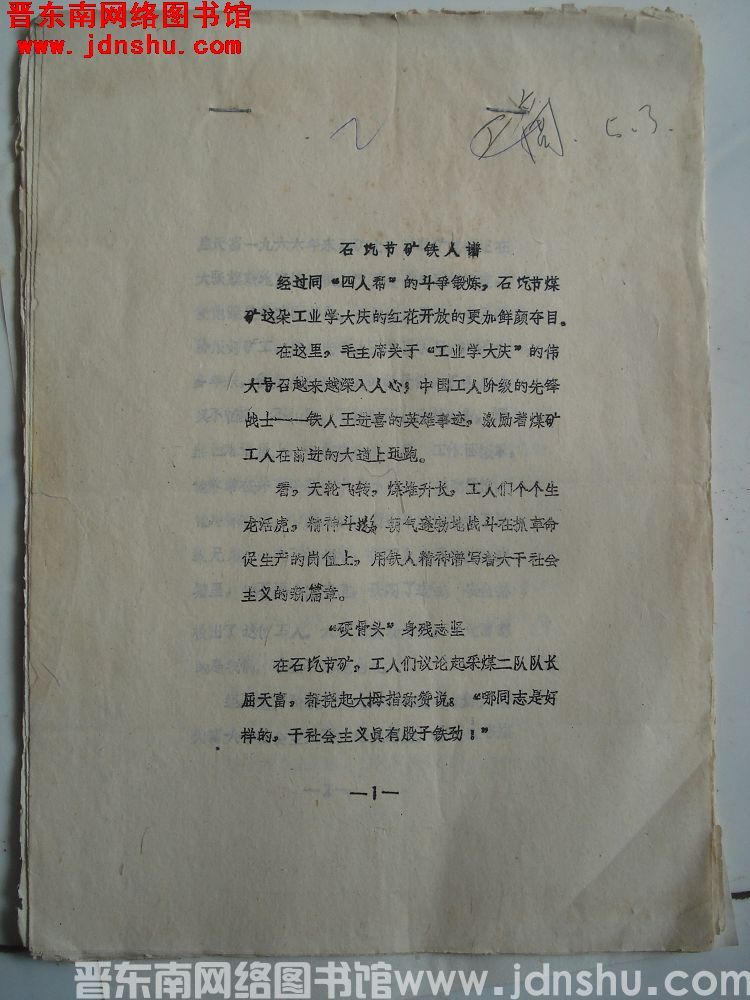 晋东南网络图书馆
www.jdnshu.com
5.3.
石圪节矿铁人谱
经过同“四人帮”的斗争锻炼，石圪节煤
矿这朵工业学大庆的红花开放的更加鲜颜夺目。
在这里，毛主席关于“工业学大庆”的伟
大号召越来越深入人心；中国工人阶级的先锋
战士——铁人王进喜的英雄事迹，激励着煤矿
工人在前进的大道上迅跑。
看，天轮飞转，煤堆升长，工人们个个生
龙活虎，精神斗擞，朝气蓬勃地战斗在抓革命
促生产的岗位上，用铁人精神谱写着大干社会
主义的新篇章。
“硬骨头”身残志坚
在石圪节矿，工人们议论起采煤二队队长
屈天富，都挠起大拇指称赞说：“哪同志是好
样的，干社会主义真有股子铁劲！”
—1—
晋东南网络图书馆www.jdnshu.com